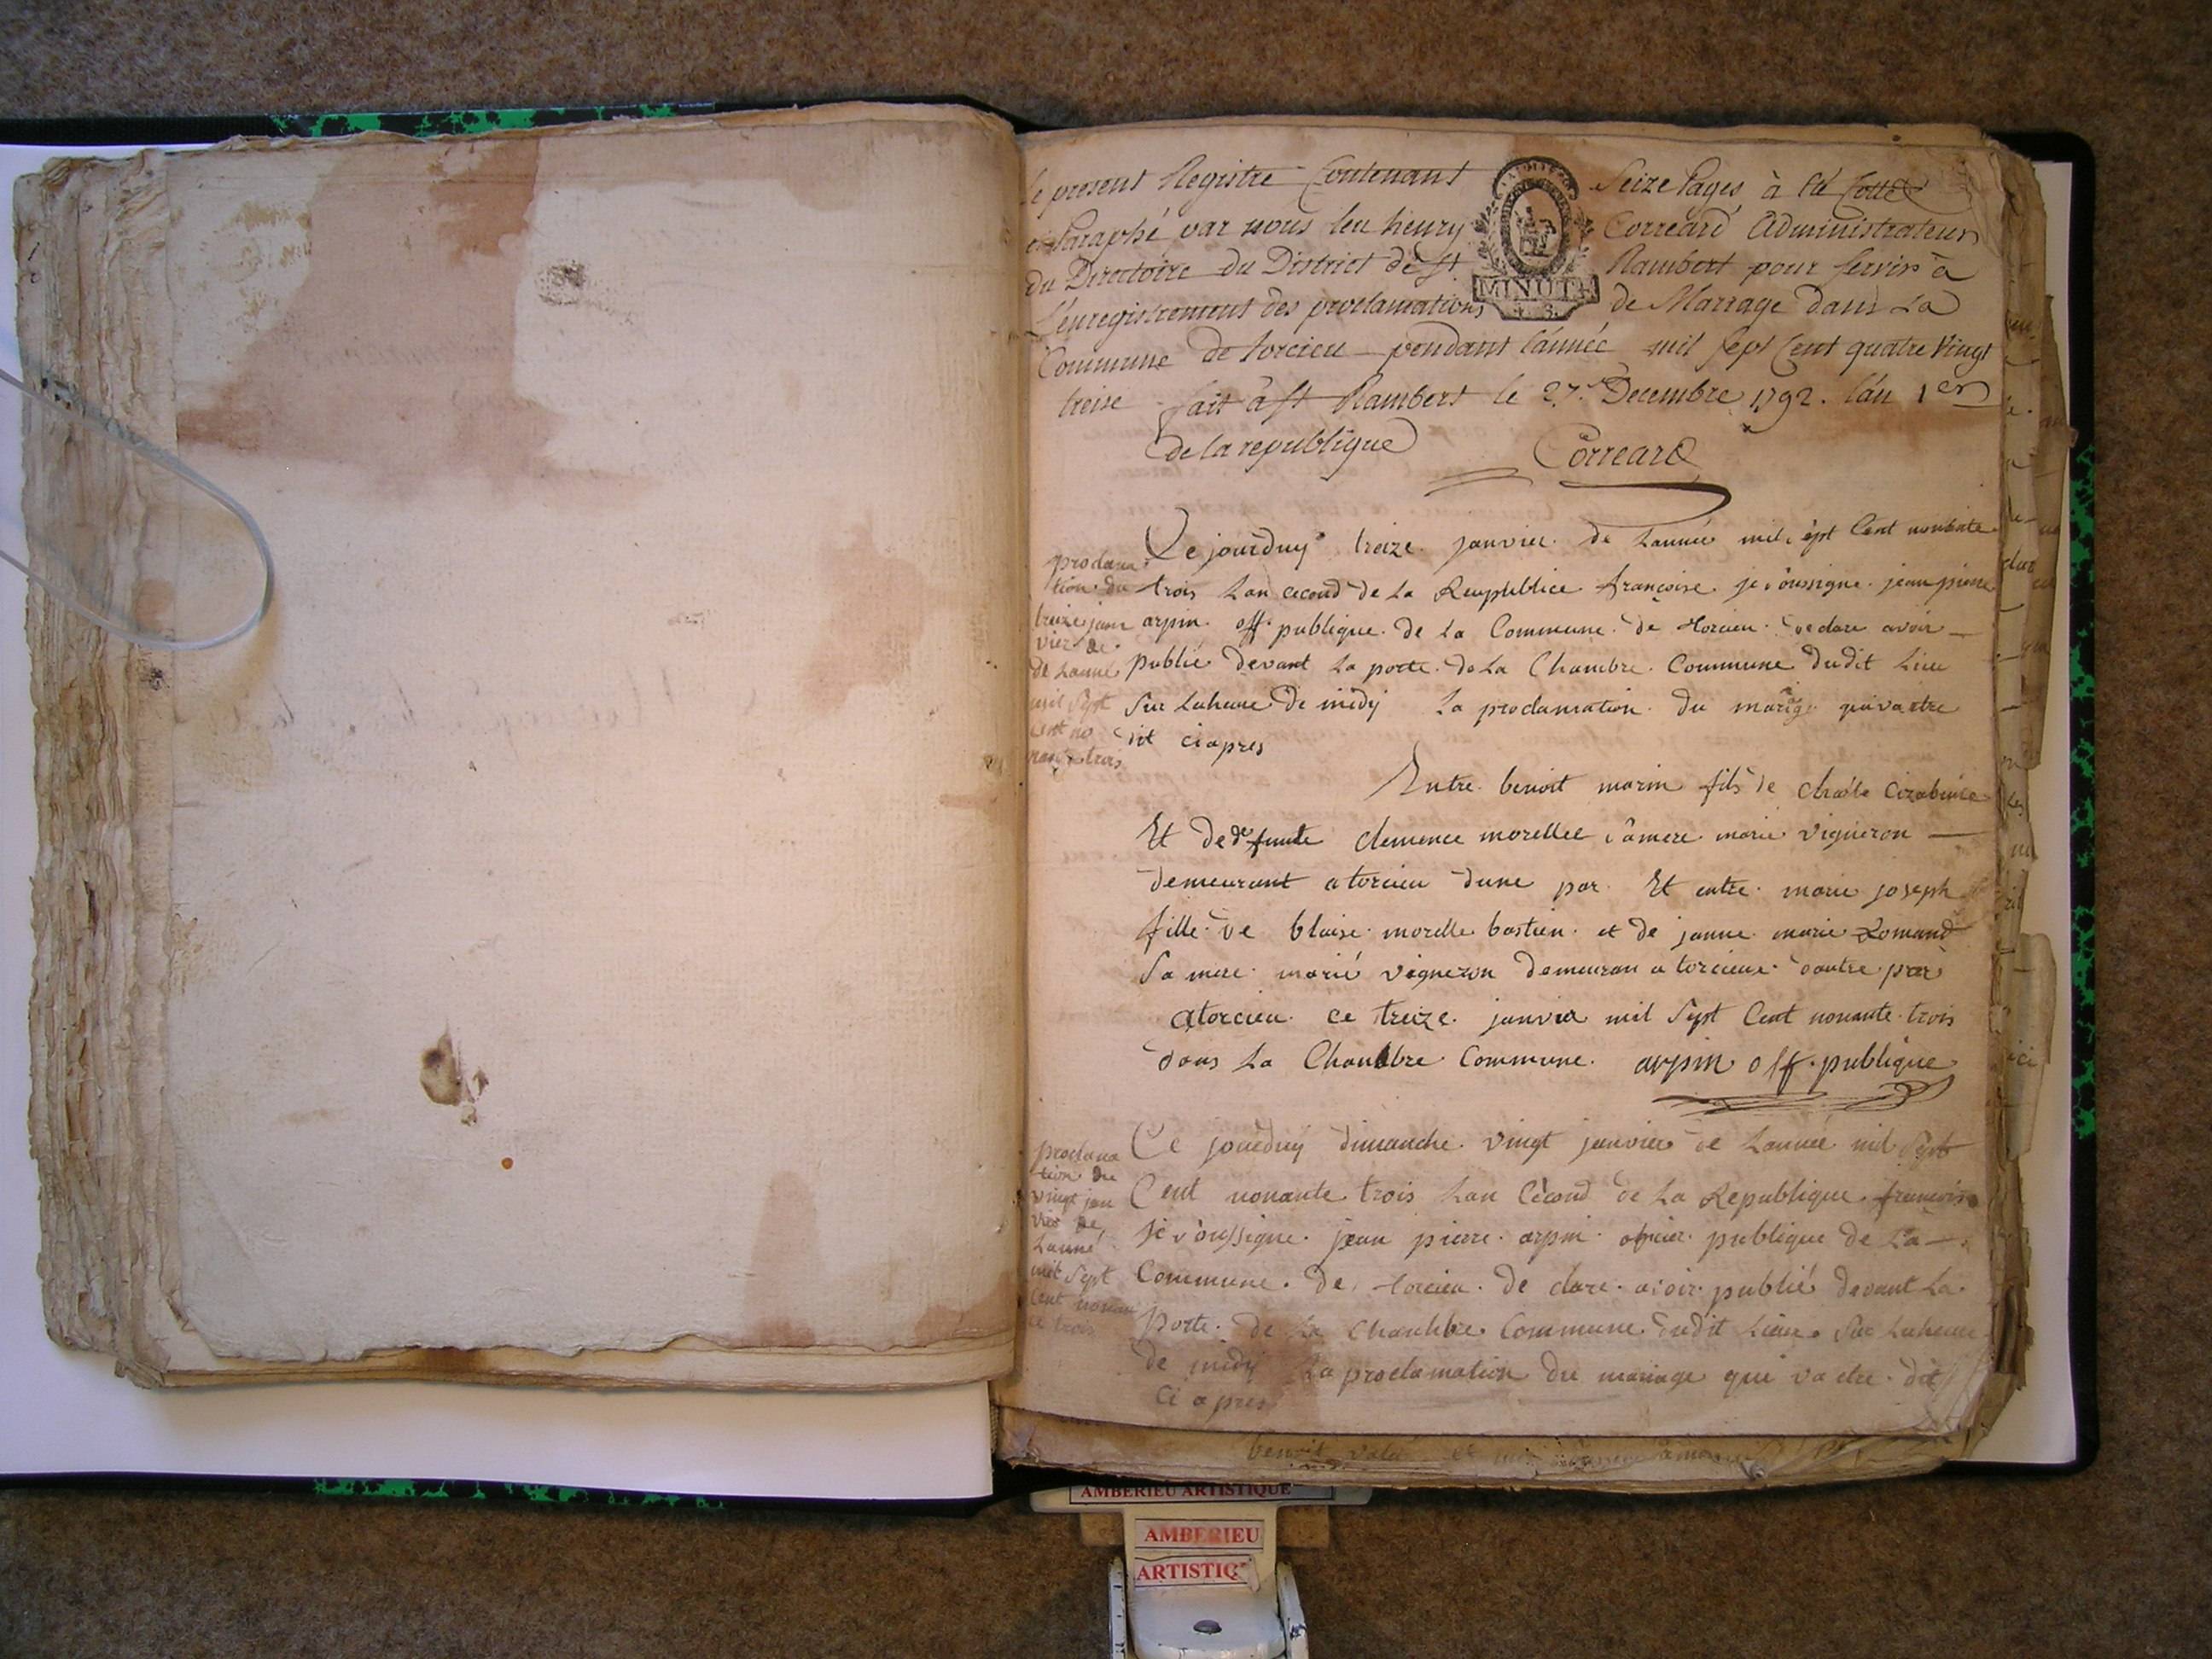 Le present Registre Contenant Seize Pages à été Cotté
et Paraphé par nous leu henry Correard Administrateur
du Directoire du District de St Rambert pour servir à
L'enregistrement des proclamations de Mariage dans La
Commune de torcieu pendant l'année mil sept Cent quatre Vingt
treise fait à St Rambert le 27. Decembre 1792. l'an 1er
de la republique Correard
MINUTE
Ce jourduy treize janvier de Lannée mil sept Cent nonante
trois Lan cecond de La Reupublice françoise je soussigne jean pierre
arpin off. publique de La Commune de torcieu declare avoir
publié devant La porte de La Chambre Commune dudit Lieu
Sur Luheure de midy La proclamation du mariage qui va etre
dit ci apres
proclama
tion du
treize jan
vier de
de Lanné
mil Sept
cent no
nante trois
Entre benoit marin fils de
Et de defunte clemence morellee sa mere marie vigneron
demeurant a torcieu dune par Et entre marie joseph
fille de blaise morelle bastien et de janne marie Romand
Sa mere marié vigneron demeuran a torcieu dautre par
a torcieu ce treize janvier mil Sept Cent nonante trois
dans La Chambre Commune. arpin off. publique
proclama
tion du
vingt jan
vier de
Lanné
mil Sept
Cent nonan
te trois
Ce jourduy dimanche vingt janvier de Lannée mil Sept
Cent nonante trois Lan Cecond de La Republique francoise
je soussigne jean pierre arpin oficier publique de La
Commune de torcieu de clare avoir publié devant La
Porte de La Chambre Commune dudit Lieu Sur Luheure
de midy La proclamation du mariage qui va etre dit
Ci apres
benoit
AMBERIEU ARTISTIQUE
AMBERIEU
ARTISTIQ